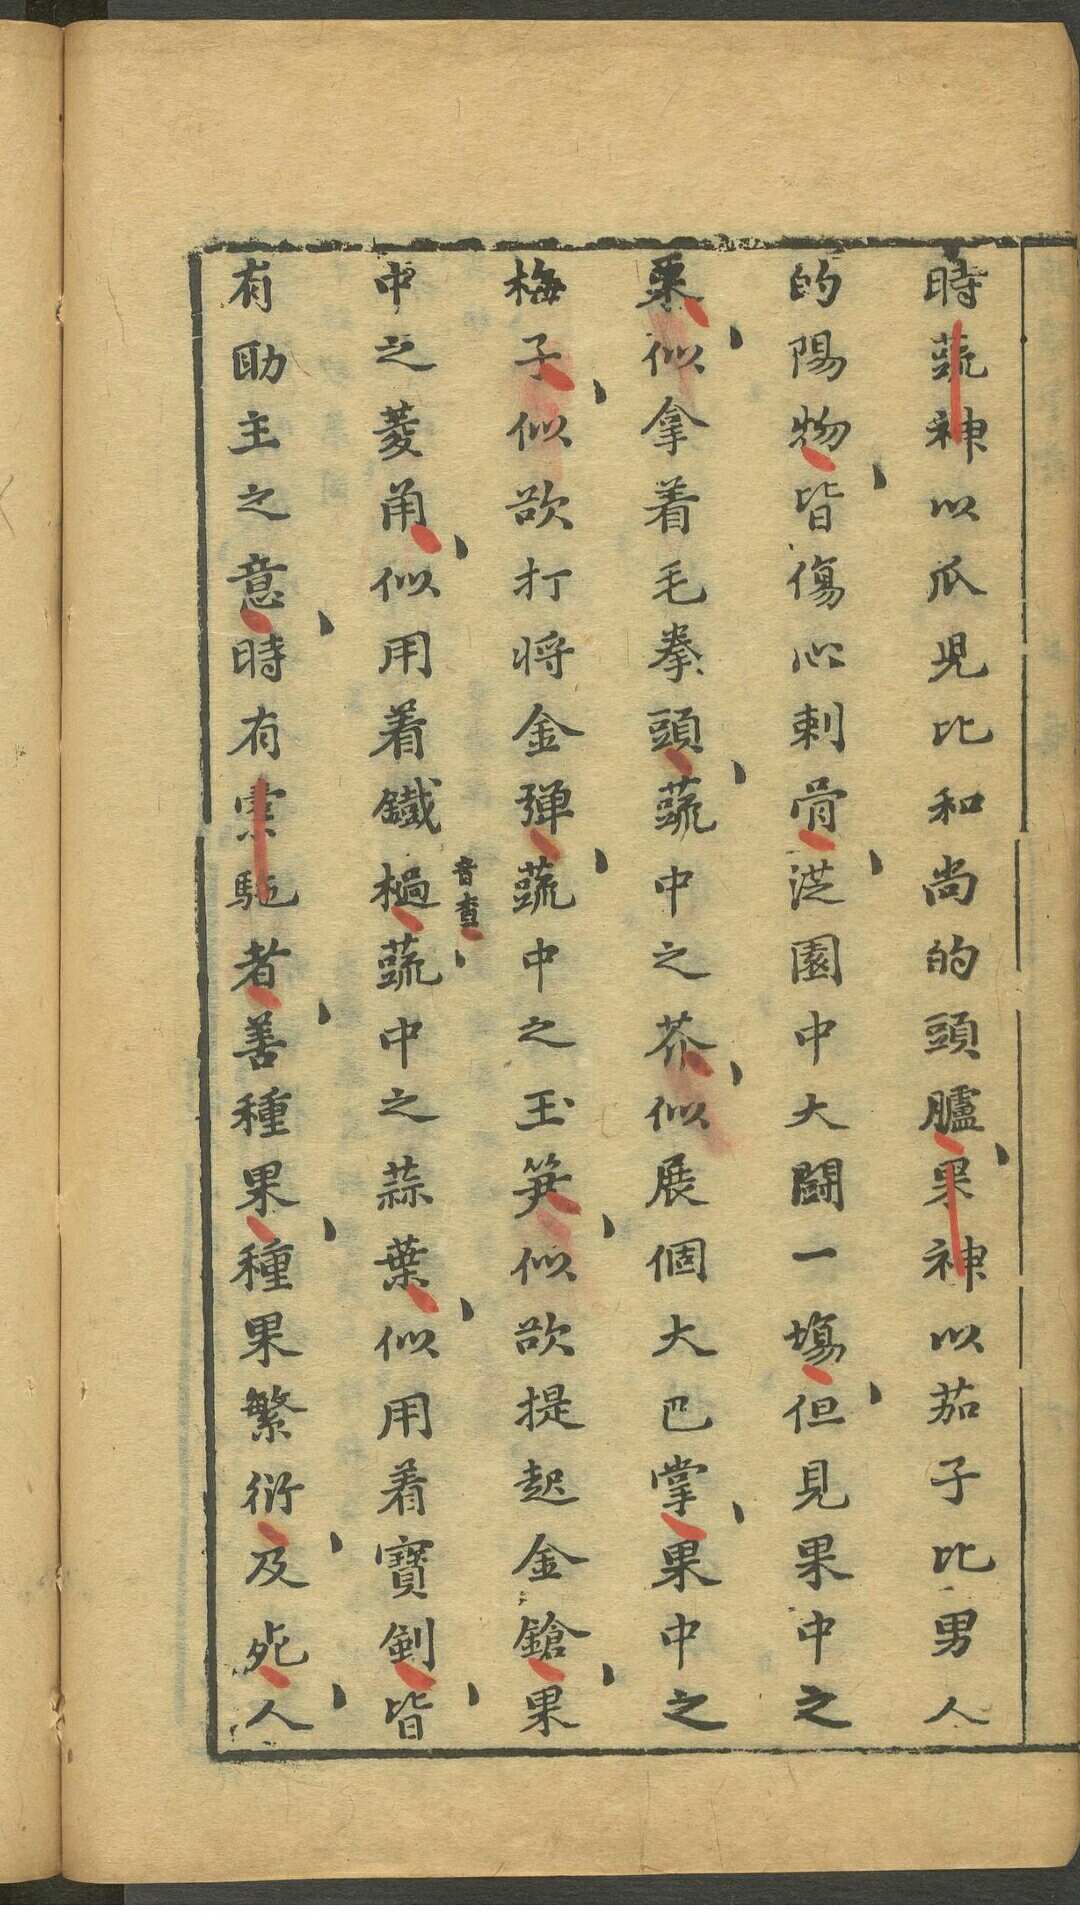 時蔬神以瓜児比和尚的頭臚果神以茄子比男人
的陽物皆傷心刺骨淇園中大鬪一塲但見果中之
栗似拿着毛拳頭蔬中之芥似展個大巴掌果中之
梅子似欲打将金弹蔬中之玉笋似欲提起金鎗果
中之菱甪似用着鐵檛音查蔬中之蒜葉似用着寶劍皆
有助主之意時有槖駞者善種果種果繁衍及死人